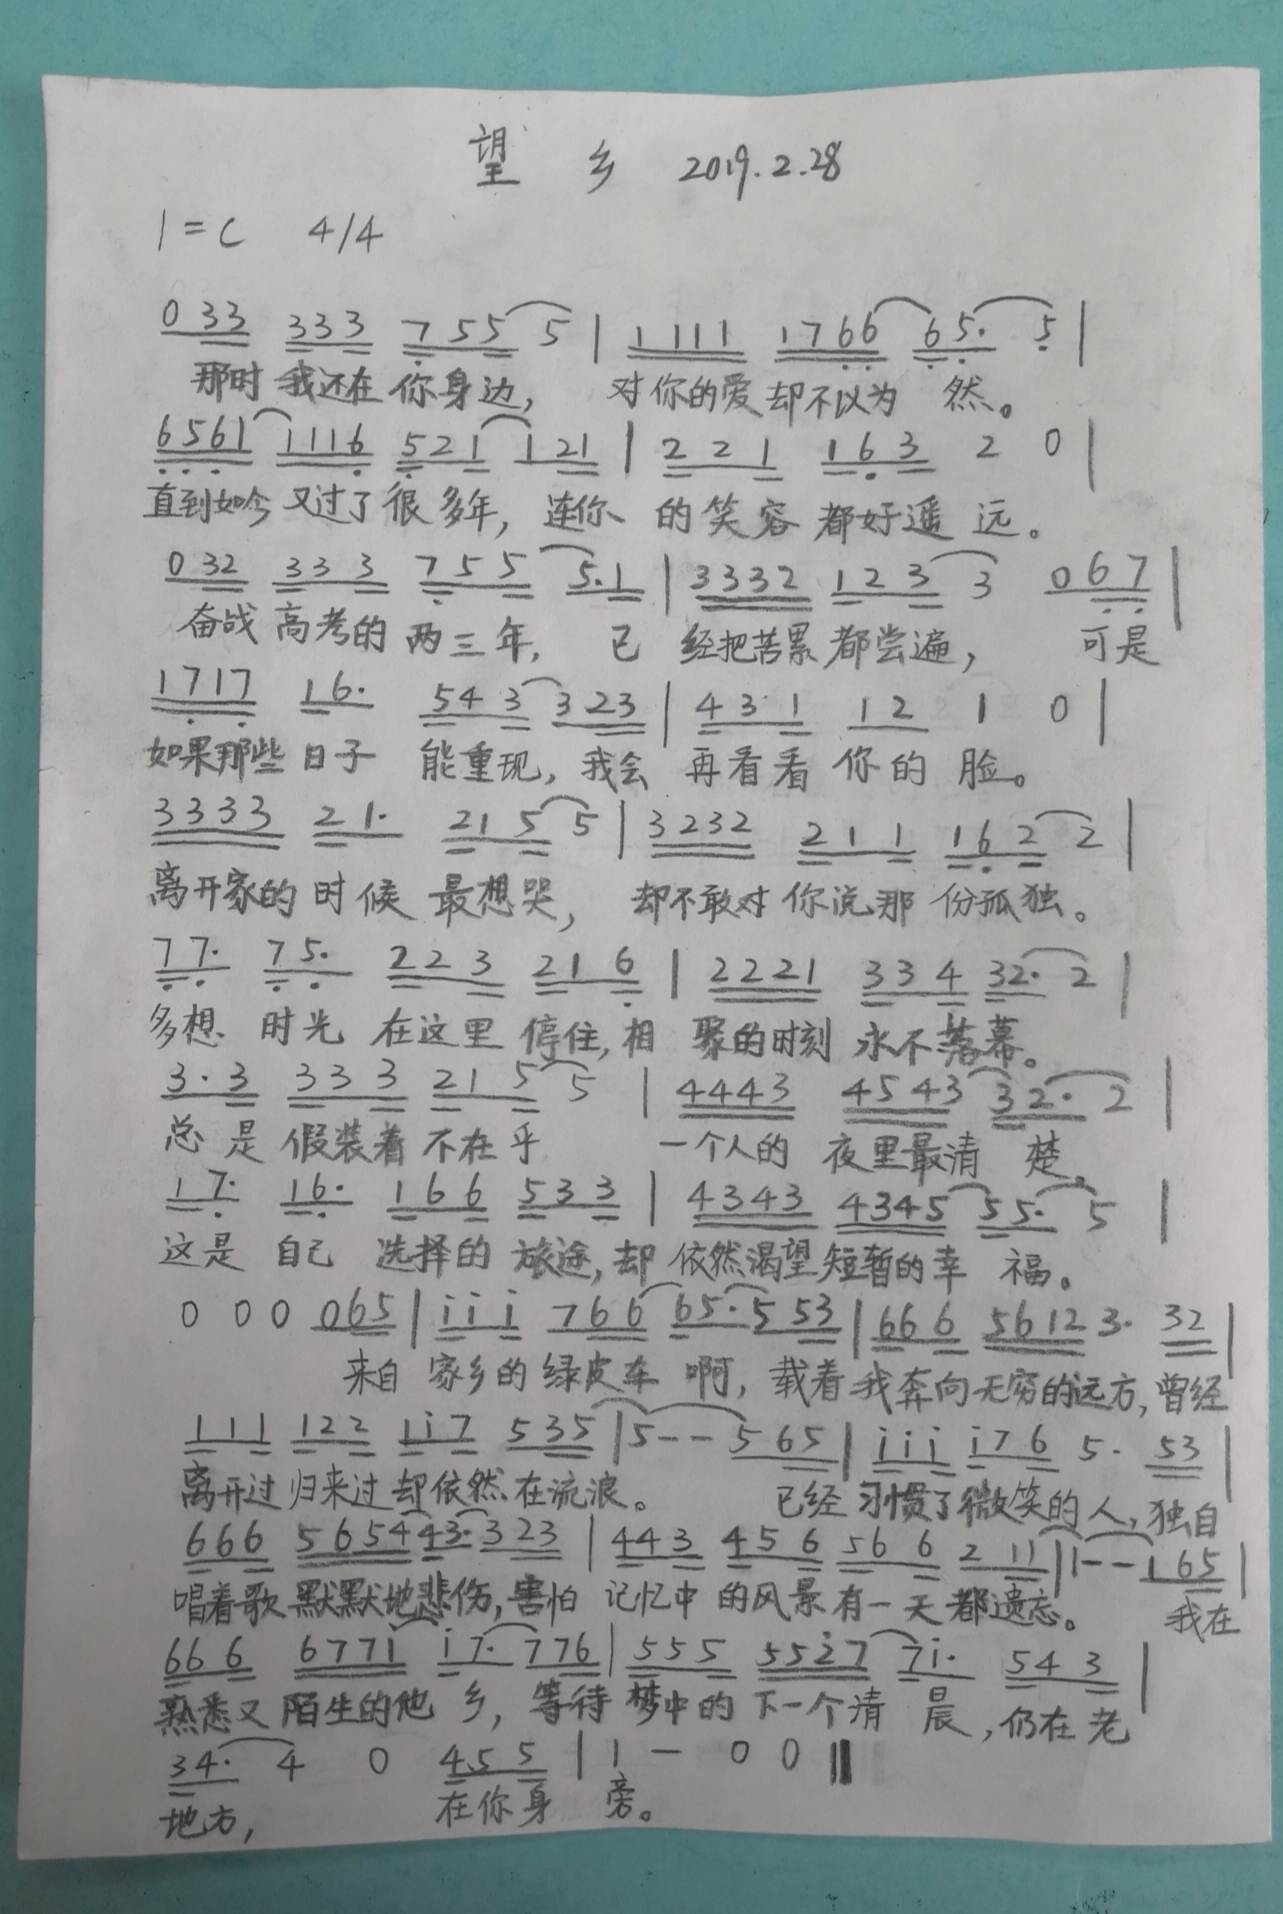 望 乡 2019.2.28
1=C 4/4
0 33 333 755 5 | 1111 1766 65· 5 |
那时 我还在 你身边, 对你的爱 却不以为 然。
6561 1116 521 121 | 221 163 2 0 |
直到如今 又过了很 多年, 连你 的笑容 都好遥 远。
032 333 755 5·1 | 3332 123 3 067 |
奋战 高考的 两三年, 已 经把苦累 都尝遍, 可是
1717 16· 543 323 | 431 12 1 0 |
如果那些 日子 能重现, 我会 再看看 你的 脸。
3333 21· 215 5 | 3232 211 162 2 |
离开家的 时候 最想哭, 却不敢对 你说那 份孤独。
77· 75· 223 216 | 2221 334 32· 2 |
多想 时光 在这里 停住,相 聚的时刻 永不落幕。
3·3 333 215 5 | 4443 4543 32· 2 |
总是 假装着 不在乎 一个人的 夜里最清 楚。
17· 16· 166 533 | 4343 4345 55· 5 |
这是 自己 选择的 旅途,却 依然渴望 短暂的幸 福。
0 0 0 065 | iii 766 65·5 53 | 666 5612 3· 32 |
来自 家乡的 绿皮车 啊, 载着 我奔向 无穷的远方, 曾经
111 122 1i7 535 | 5-- 565 | iii i76 5· 53 |
离开过 归来过 却依然 在流浪。 已经 习惯了 微笑的 人, 独自
666 5654 43· 323 | 443 456 566 211 | 1-- 165 |
唱着歌 默默地悲伤, 害怕 记忆中 的风景 有一天 都遗忘。 我在
666 6771 i7· 776 | 555 55i7 7i· 543 |
熟悉又 陌生的他 乡, 等待 梦中的 下一个清 晨, 仍在老
34· 4 0 455 | 1 - 0 0 ‖
地方, 在你身 旁。